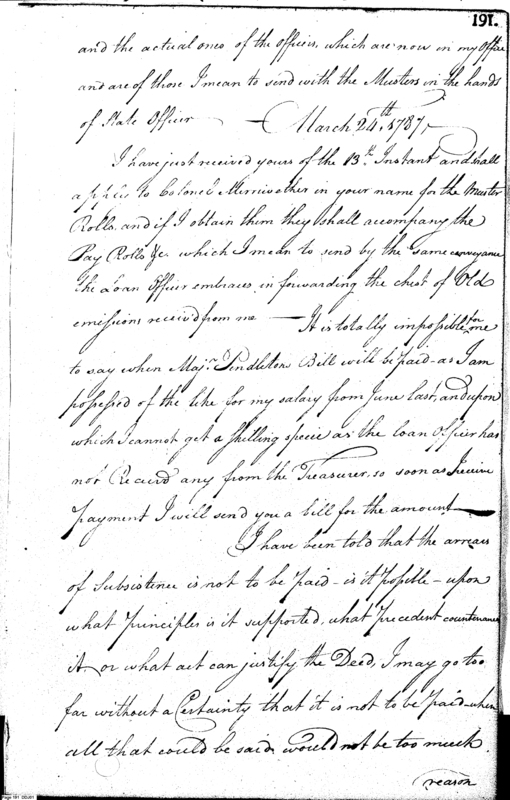 191.
and the actual ones of the officers, which are now in my Office
and are of those I mean to send with the Musters in the hands
of State Officer — March 24th, 1787,
I have just received yours of the 13th Instant and shall
apply to Colonel Merriwether in your name for the Muster
Rolls, and if I obtain them they shall accompany the
Pay Rolls &c which I mean to send by the same conveyance
the Loan Officer embraces in forwarding the chest of Old
emissions received from me — It is totally impossible for me
to say when Majr. Pendletons Bill will be paid - as I am
possessed of the like for my salary from June last, and upon
which I cannot get a shilling specie as the loan Officer has
not Recievd any from the Treasurer, so soon as I receive
Payment I will send you a bill for the amount —
I have been told that the arrears
of Subsistence is not to be paid - is it possible - upon
what Principles is it supported, what precedent countenances
it or what act can justify the Deed, I may go too
far without a Certainty that it is not to be paid - when
all that could be said, would not be too much
reason
Page 191